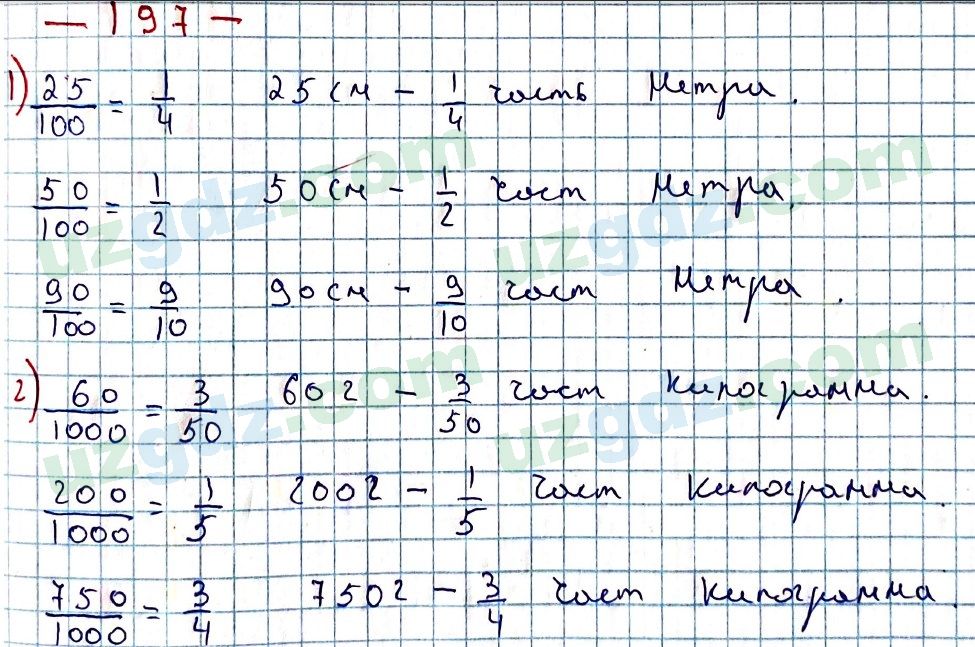 — 197 —
1) 25/100 = 1/4 25 см – 1/4 часть Метра.
50/100 = 1/2 50 см – 1/2 част Метра.
90/100 = 9/10 90 см – 9/10 част Метра.
2) 60/1000 = 3/50 60 г – 3/50 част Килограмма.
200/1000 = 1/5 200 г – 1/5 част Килограмма.
750/1000 = 3/4 750 г – 3/4 част Килограмма.
uzgdz.com
uzgdz.com
uzgdz.com
uzgdz.com